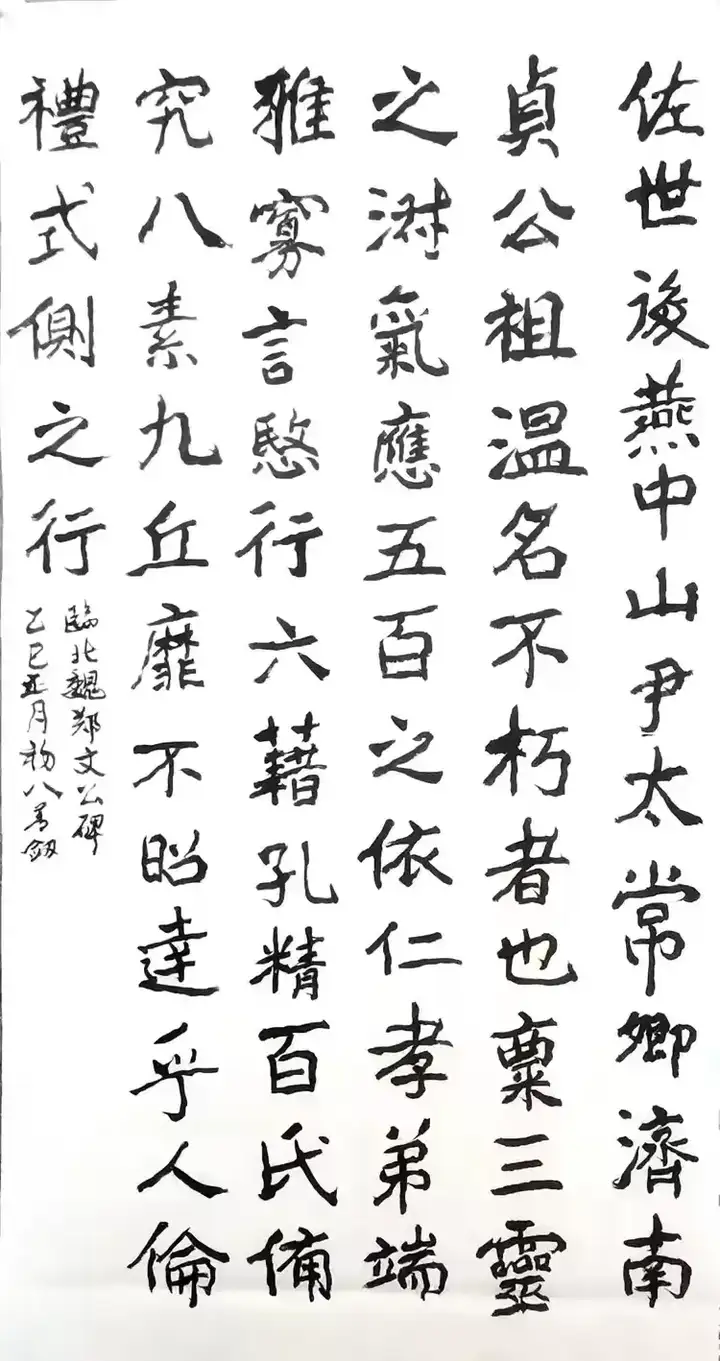 佐世後燕中山尹太常卿濟南
貞公祖温名不朽者也稟三靈
之淑氣應五百之依仁孝弟端
雅寡言愍行六藉孔精百氏備
究八素九丘靡不昭達乎人倫
禮式側之行
臨北魏鄭文公碑
乙巳正月初八